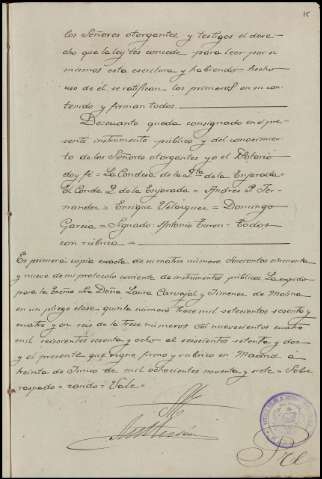 15
los Señores otorgantes y testigos el dere-
cho que la ley les concede para leer por si
mismos esta escritura y habiendo hecho
uso de el se ratifican los primeros en su con-
tenido y firman todos
De cuanto queda consignado en el pre-
sente instrumento publico y del conocimien-
to de los Señores otorgantes yo el Notario
doy fé = La Condesa de la Vda de la Enjarada =
El Conde D. de la Enjarada = Andres P. Fer-
nandez = Enrique Velazquez = Domingo
Garcia = Signado: Antonio Turon = todos
con rúbrica =
Es primera copia exacta de su matriz número doscientos
y nueve de mi protocolo corriente de instrumentos públicos. La expido
para la Excma Sra Doña Laura Carvajal y Jimenez de Molina
en un pliego clase quinta número trece mil setecientos sesenta y
cuatro y en seis de la trece números del novecientos cuatro
mil seiscientos sesenta y ocho al seiscientos setenta y dos
y el presente que signo firmo y rubrico en Madrid á
treinta de Junio de mil ochocientos noventa y siete = Sobre
raspado = Vale =